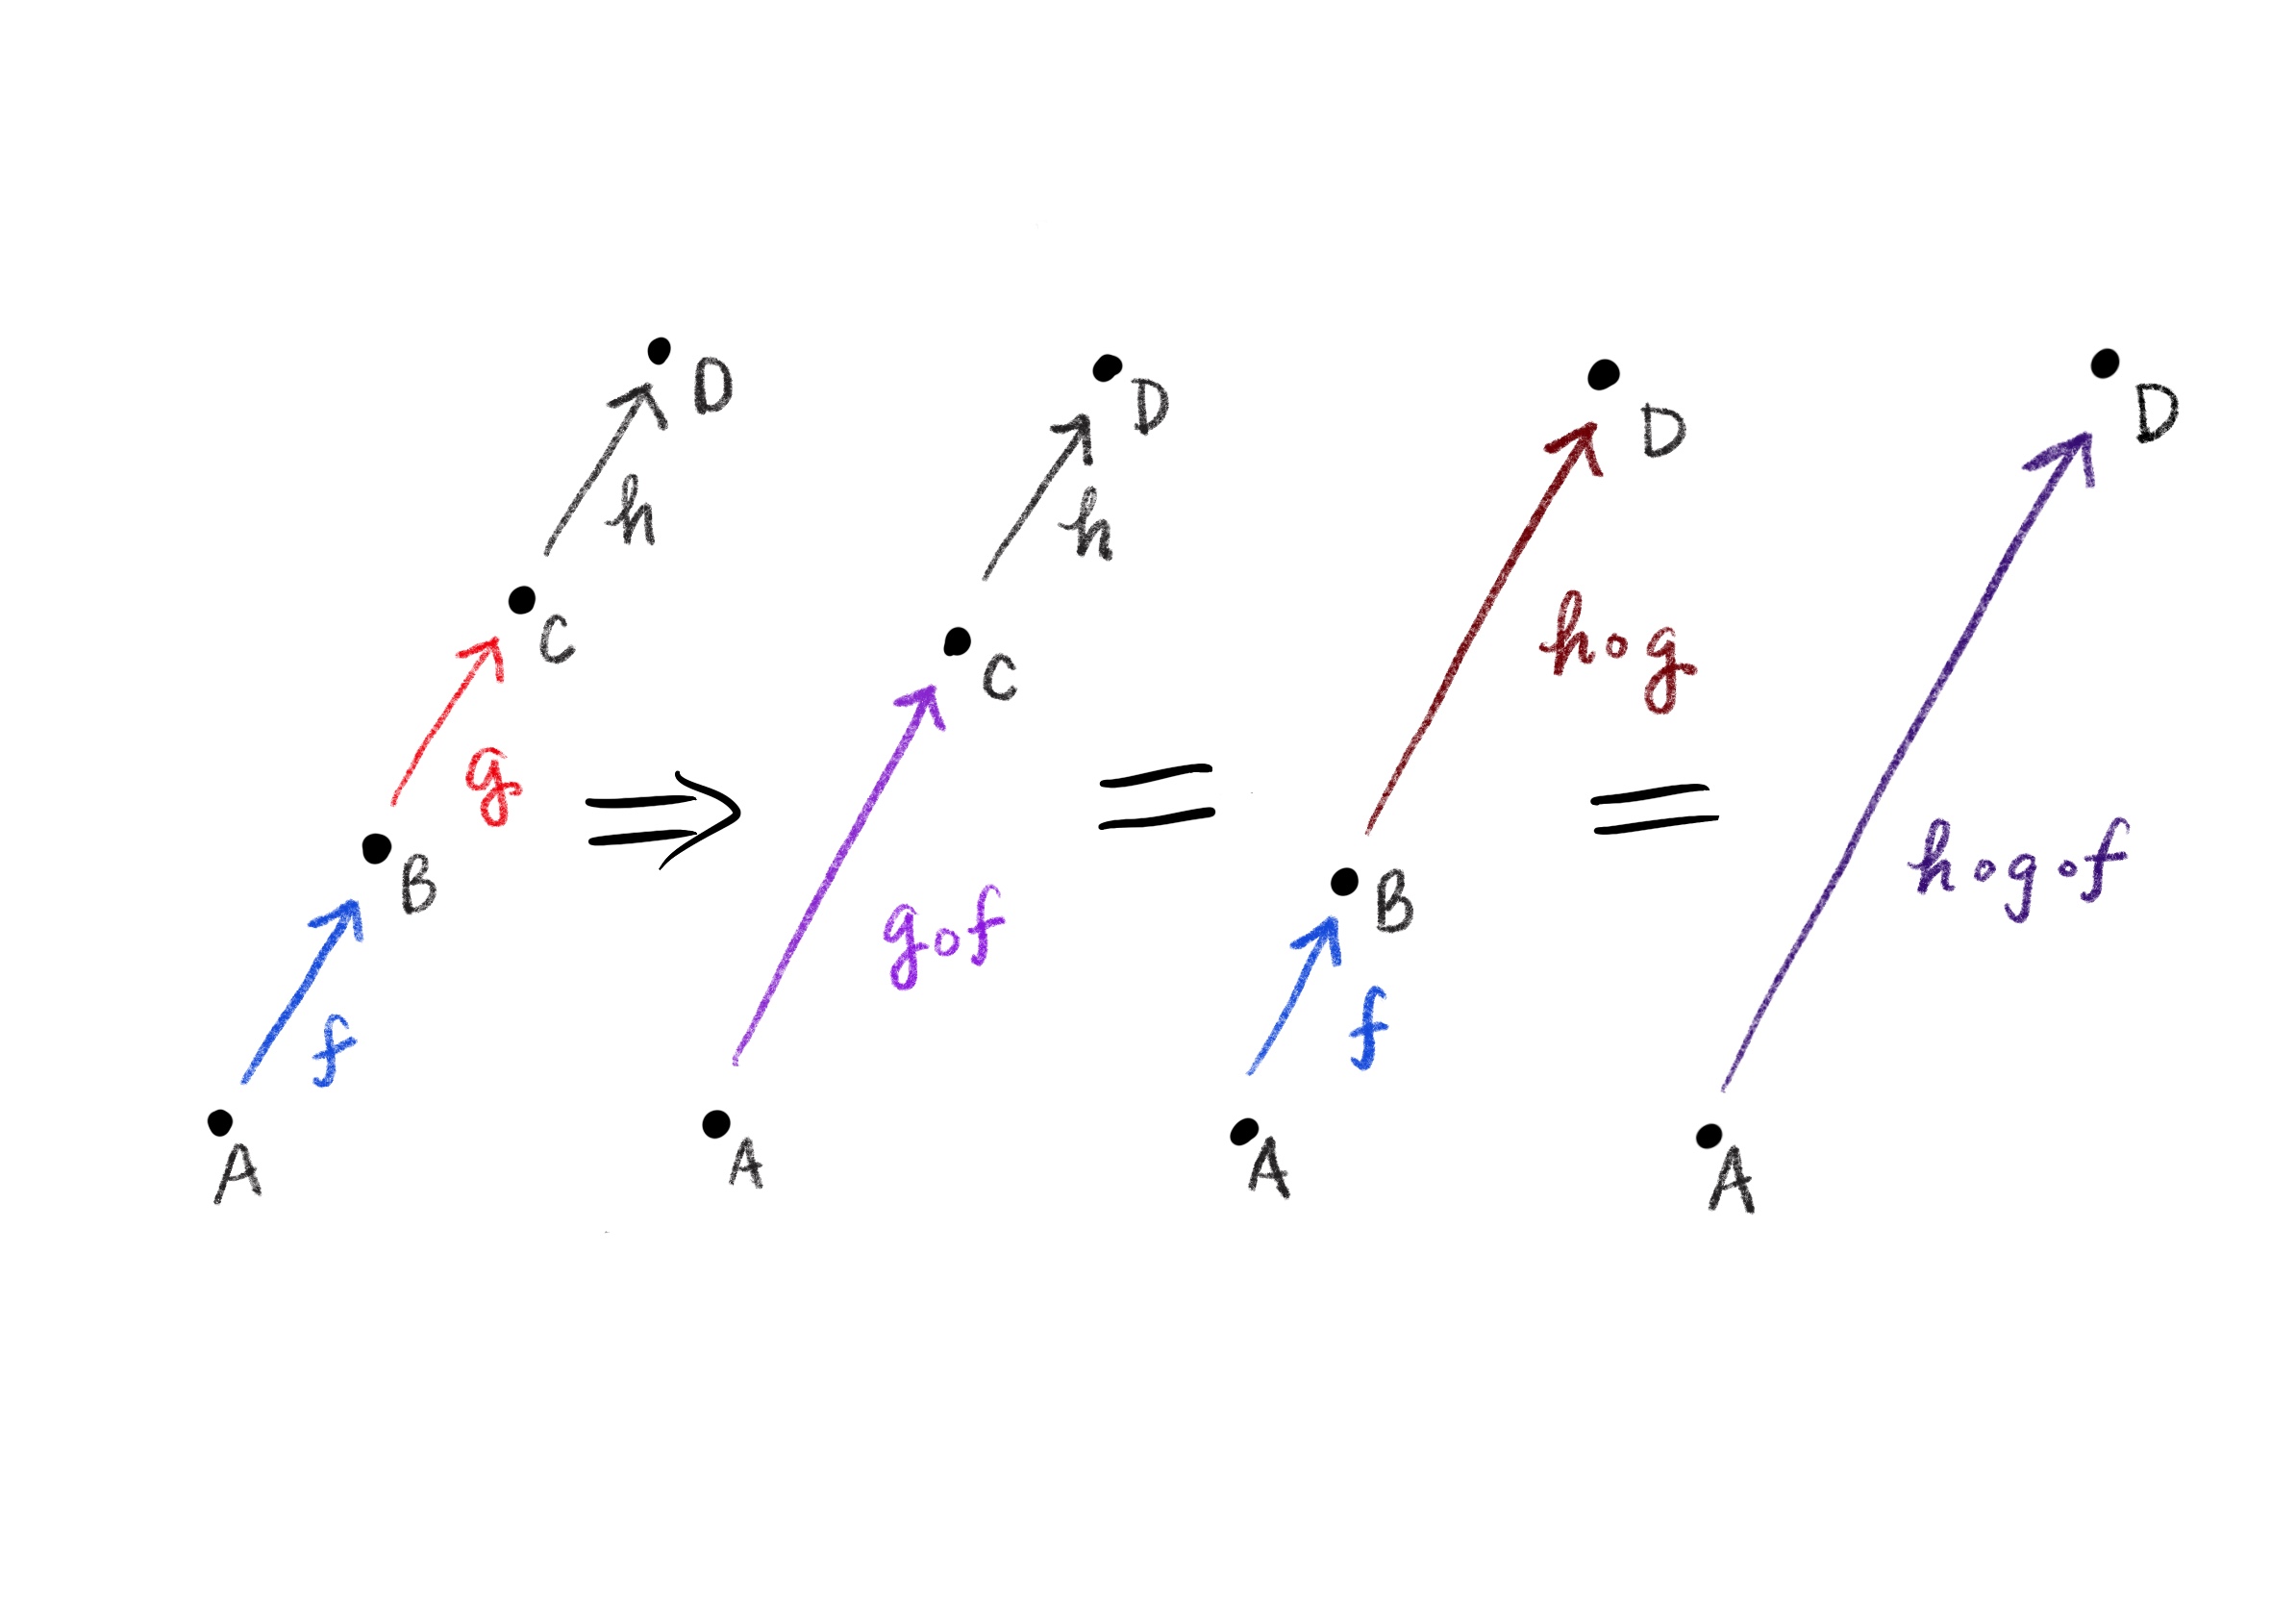 D
h
C
g
B
f
A
⇒
D
h
C
g∘f
A
=
D
h∘g
B
f
A
=
D
h∘g∘f
A